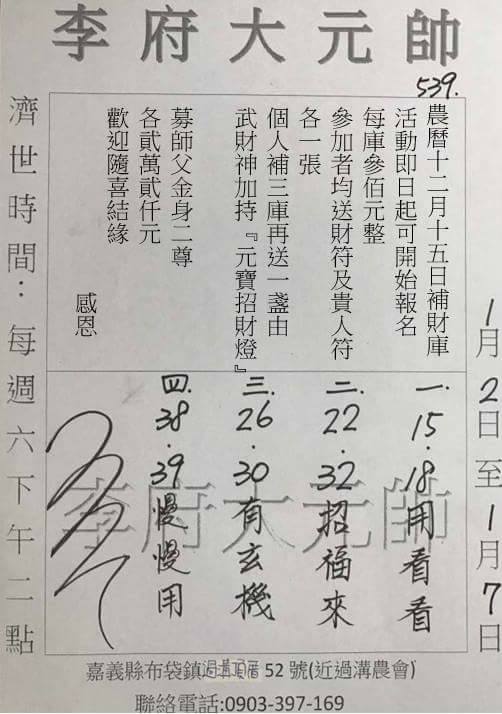 李府大元帥
539.
農曆十二月十五日補財庫
活動即日起可開始報名
每庫參佰元整
參加者均送財符及貴人符
各一張
個人補三庫再送一盞由
武財神加持『元寶招財燈』
募師父金身二尊
各貳萬貳仟元
歡迎隨喜結緣
感恩
1月2日至1月7日
一.15.18用看看
二.22.32招福來
三.26.30有玄機
四.38.39慢慢用
李府大元帥
濟世時間：每週六下午二點
嘉義縣布袋鎮 52 號(近過溝農會)
聯絡電話:0903-397-169